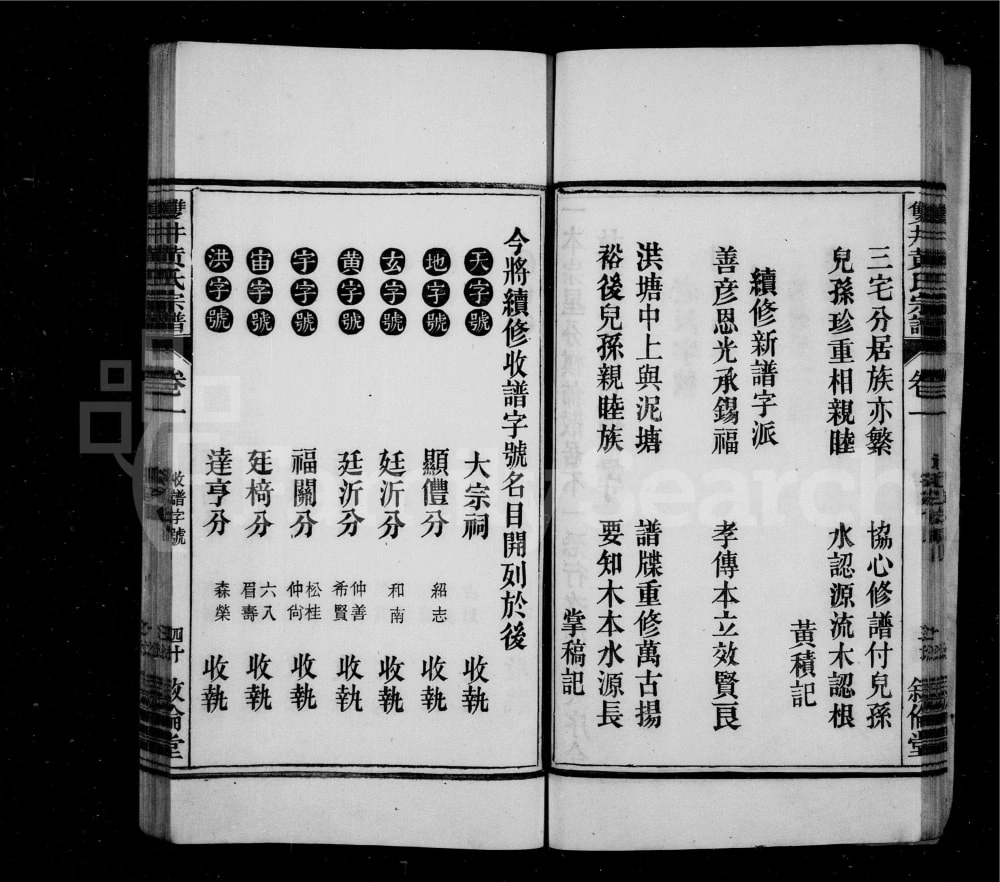 三宅分居族亦繁 協心修譜付兒孫
兒孫珍重相親睦 水認源流木認根
黃積記
續修新譜字派
善彦恩光承錫福 孝傳本立效賢良
洪塘中上與泥塘 譜牒重修萬古揚
裕後兒孫親睦族 要知木本水源長
掌稿記
今將續修收譜字號名目開列於後
天字號 大宗祠 收執
地字號 顯僼分 紹志 收執
玄字號 廷沂分 和南 收執
黄字號 廷沂分 仲善 希賢 收執
宇字號 福關分 松桂 仲尚 收執
宙字號 廷椅分 六入 眉壽 收執
洪字號 達亨分 森榮 收執
雙井黃氏宗譜 卷一 收譜字號 四十 敘倫堂
雙井黃氏宗譜 卷一 敘倫堂
FamilySearch